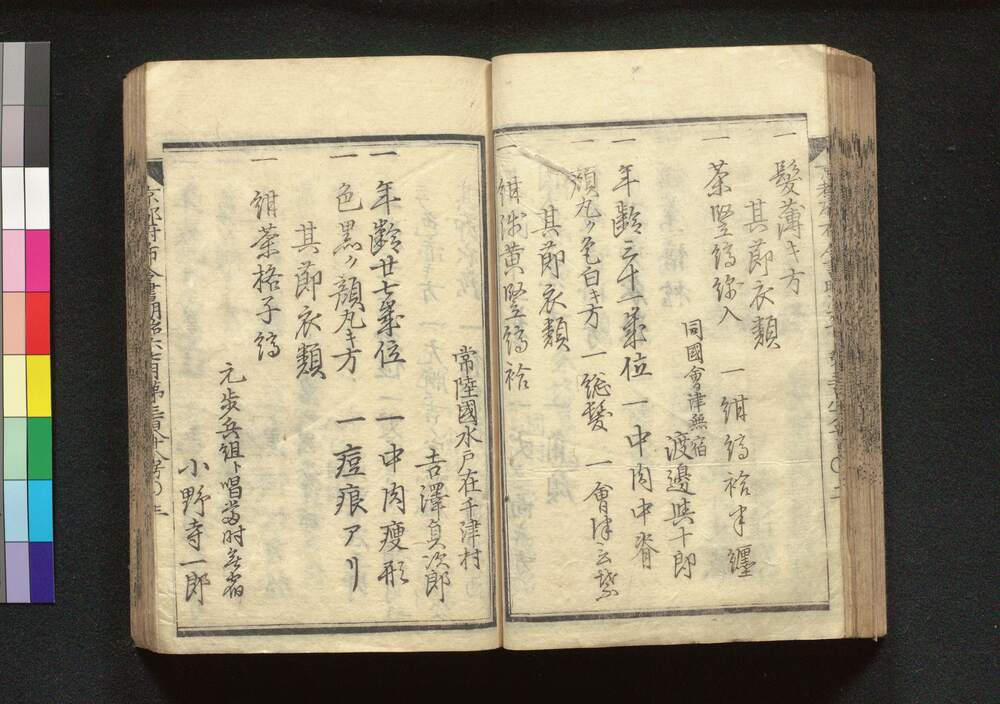 一 髪薄キ方
其節衣類
一 茶竪縞綿入 一 紺縞袷半纏
同國會津無宿
渡邊與十郎
一 年齢三十一歳位 一 中肉中脊
一 顔丸ク色白キ方 一 総髪 一 會津言葉
其節衣類
一 紺浅黄竪縞袷
常陸國水戸在千津村
吉澤貞次郎
一 年齢廿七歳位 一 中肉痩形
一 色黒ク顔丸キ方 一 痘痕アリ
其節衣類
一 紺茶格子縞
元歩兵組ト唱當時無宿
小野寺一郎